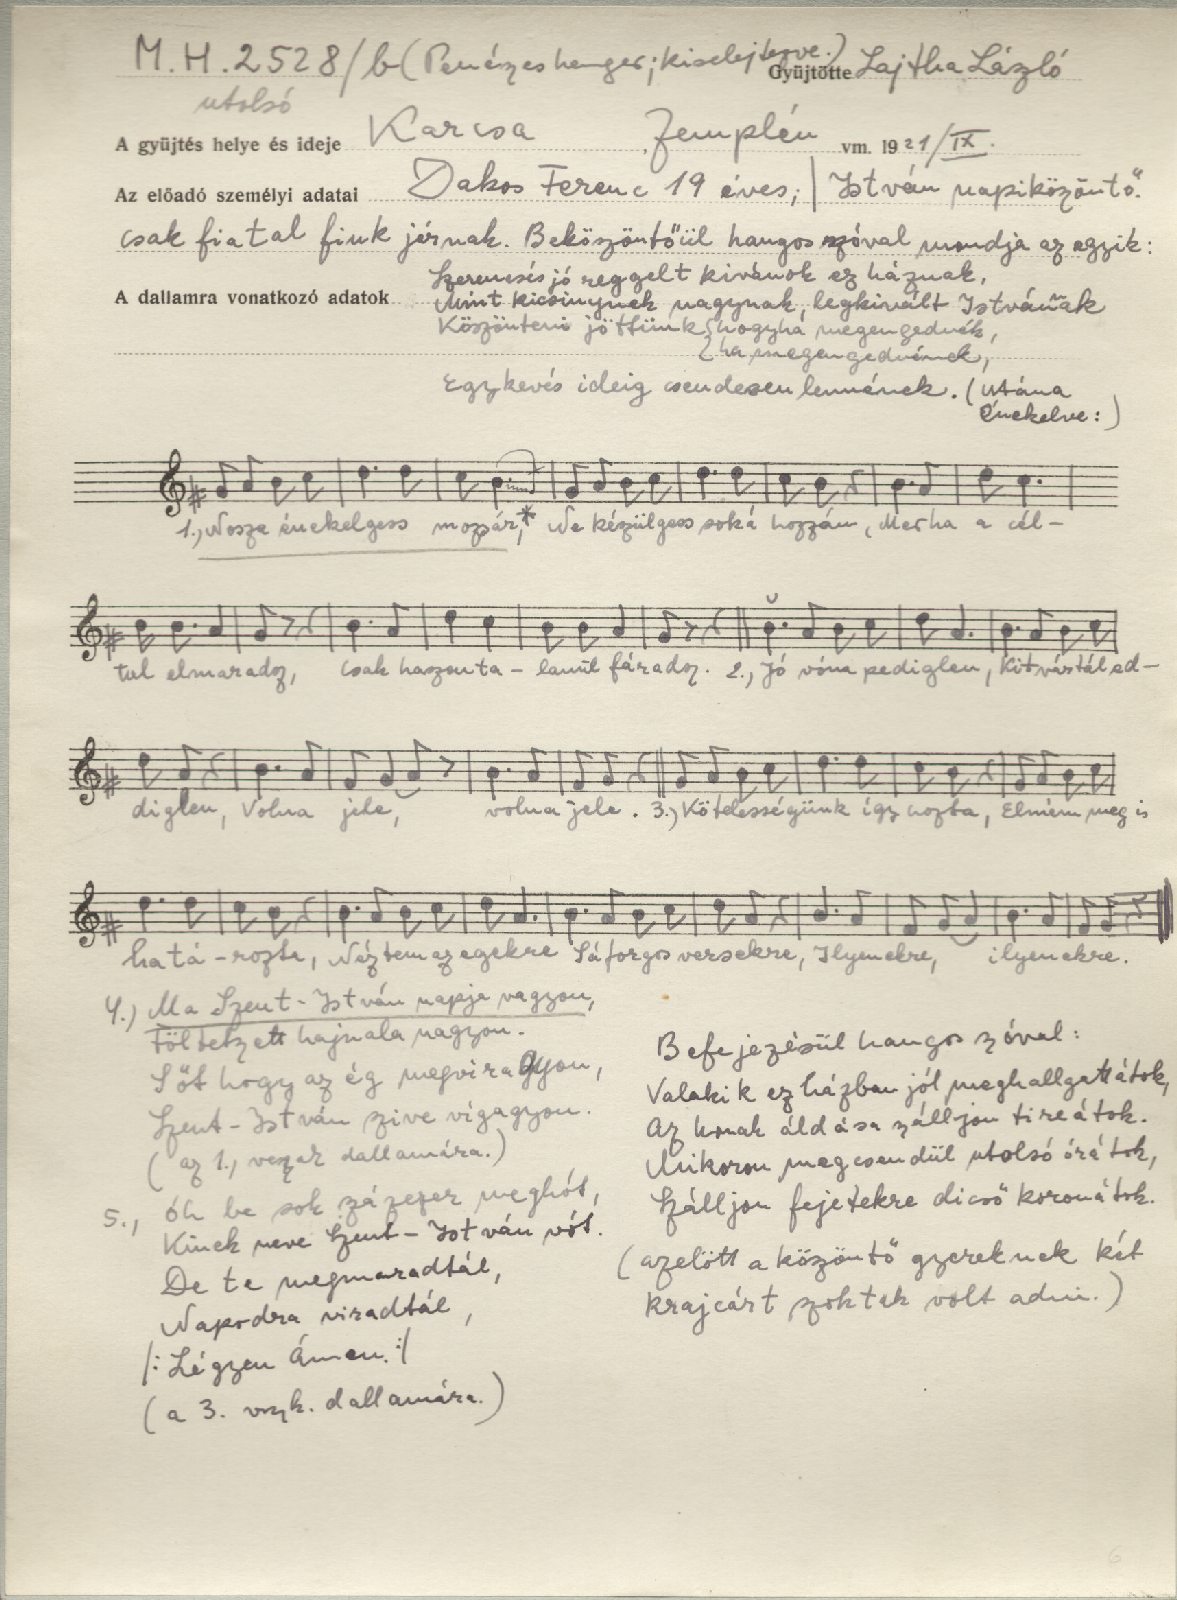 M.H.2528/b (Penészes henger; kiselejtezve.) Gyüjtötte Lajtha László
utolsó
A gyüjtés helye és ideje Karcsa, Zemplén vm. 1921/IX.
Az előadó személyi adatai Dakos Ferenc 19 éves; | István napiközöntő.
csak fiatal fiuk járnak. Beköszöntőül hangos szóval mondja az egyik:
Szerencsés jó reggelt kivánok ez háznak,
A dallamra vonatkozó adatok Mint kicsinynek nagynak, legkivált Istvánnak
Köszönteni jöttünk { hogyha megengednék,
{ ha megengednének,
Egykevés ideig csendesen lennének. (Utána
Énekelve:)
1., Nosza énekelgess mozsár,* Ne készülgess soká hozzám, Mer ha a cél-
tul elmaradsz, csak haszonta-lanúl fáradsz. 2., Jó vóna pediglen, Kit vártál ed-
diglen, Volna jele, volna jele. 3.) Kötelességünk így hozta, Elmém meg is
hatá-rozta, Néztem az egekre Sáforgos versekre, Ilyenekre, ilyenekre.
4.) Ma Szent-István napja vagyon,
Föltetzett hajnala nagyon.
Sőt hogy az ég megviragyon,
Szent-István szive vigagyon.
(az 1., verszak dallamára.)
5., óh be sok százezer meghót,
Kinek neve Szent-István vót.
De te megmaradtál,
Napodra viradtál,
/: Légyen Ámen. :/
(a 3. vszk. dallamára.)
Befejezésül hangos szóval:
Valakik ez házban jól meghallgattátok,
Az Urnak áldása szálljon tireátok.
Mikoron megcsendül utolsó órátok,
Szálljon fejetekre dicső koronátok.
(azelőtt a közöntő gyereknek két
krajcárt szoktak volt adni.)
6